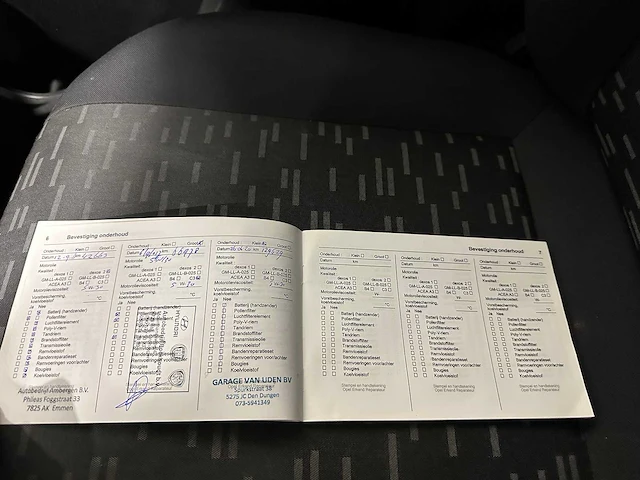 6 Bevestiging onderhoud
Onderhoud Klein Groot
Datum km
Motorolie
Kwaliteit: dexos 1 dexos 2
GM-LL-A-025 GM-LL-B-025
ACEA A3 B4 C3
Motorolieviscositeit
5 W 30
Voorbescherming,
koelvloeistof °C
Ja Nee
Autobedrijf Ambergen B.V.
Phileas Foggstraat 33
7825 AK Emmen
Onderhoud Klein Groot
Datum km
Motorolie
Kwaliteit:
dexos 1 dexos 2
GM-LL-A-025 GM-LL-B-025
ACEA A3 B4 C3
Motorolieviscositeit
5 W 30
Voorbescherming,
koelvloeistof °C
Ja Nee
Batterij (handzender)
Pollenfilter
Luchtfilterelement
Poly-V-riem
Tandriem
Brandstoffilter
Transmissieolie
Remvloeistof
Bandenreparatieset
Remvoeringen voor/achter
Bougies
Koelvloeistof
HYUNDAI
Onderhoud Klein Groot
Datum km
Motorolie
Kwaliteit:
dexos 1 dexos 2
GM-LL-A-025 GM-LL-B-025
ACEA A3 B4 C3
Motorolieviscositeit
Voorbescherming,
koelvloeistof °C
Ja Nee
Batterij (handzender)
Pollenfilter
Luchtfilterelement
Poly-V-riem
Tandriem
Brandstoffilter
Transmissieolie
Remvloeistof
Bandenreparatieset
Remvoeringen voor/achter
Bougies
Koelvloeistof
GARAGE VAN LIJDEN BV
5275 JC Den Dungen
073-5941349
Bevestiging onderhoud 7
Onderhoud Klein Groot
Datum km
Motorolie
Kwaliteit:
dexos 1 dexos 2
GM-LL-A-025 GM-LL-B-025
ACEA A3 B4 C3
Motorolieviscositeit
W
Voorbescherming,
koelvloeistof °C
Ja Nee
Batterij (handzender)
Pollenfilter
Luchtfilterelement
Poly-V-riem
Tandriem
Brandstoffilter
Transmissieolie
Remvloeistof
Bandenreparatieset
Remvoeringen voor/achter
Bougies
Koelvloeistof
Stempel en handtekening
Opel Erkend Reparateur
Onderhoud Klein Groot
Datum km
Motorolie
Kwaliteit:
dexos 1 dexos 2
GM-LL-A-025 GM-LL-B-025
ACEA A3 B4 C3
Motorolieviscositeit
W
Voorbescherming,
koelvloeistof °C
Ja Nee
Batterij (handzender)
Pollenfilter
Luchtfilterelement
Poly-V-riem
Tandriem
Brandstoffilter
Transmissieolie
Remvloeistof
Bandenreparatieset
Remvoeringen voor/achter
Bougies
Koelvloeistof
Stempel en handtekening
Opel Erkend Reparateur
Onderhoud Klein Groot
Datum km
Motorolie
Kwaliteit:
dexos 1 dexos 2
GM-LL-A-025 GM-LL-B-025
ACEA A3 B4 C3
Motorolieviscositeit
W
Voorbescherming,
koelvloeistof °C
Ja Nee
Batterij (handzender)
Pollenfilter
Luchtfilterelement
Poly-V-riem
Tandriem
Brandstoffilter
Transmissieolie
Remvloeistof
Bandenreparatieset
Remvoeringen voor/achter
Bougies
Koelvloeistof
Stempel en handtekening
Opel Erkend Reparateur